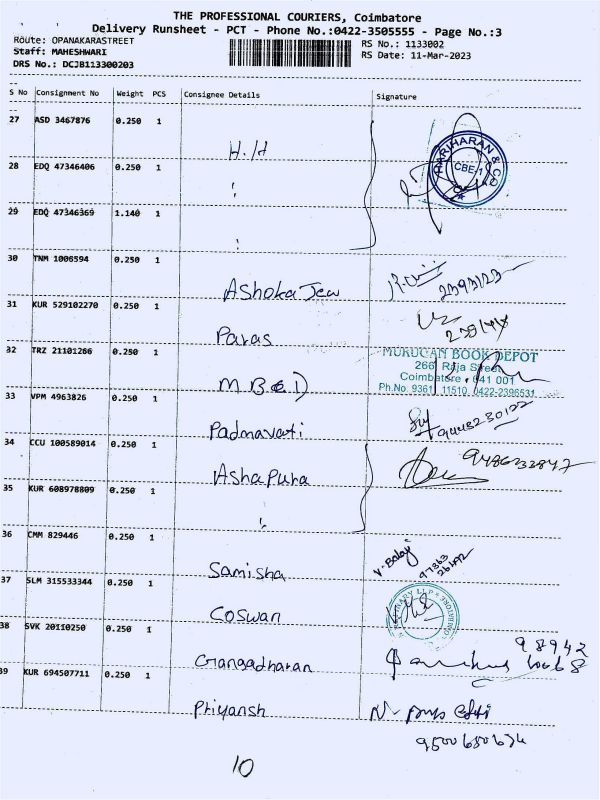 THE PROFESSIONAL COURIERS, Coimbatore
Delivery Runsheet - PCT - Phone No.:0422-3505555 - Page No.:3
Route: OPANAKARASTREET
RS No.: 1133002
Staff: MAHESHWARI
RS Date: 11-Mar-2023
DRS No.: DCJB113300203
S No Consignment No Weight PCS Consignee Details Signature
27 ASD 3467876 0.250 1
H.H
HARIHARAN & CO
CBE-1
28 EDQ 47346406 0.250 1
29 EDQ 47346369 1.140 1
30 TNM 1006594 0.250 1
Ashoka Jew
2393123
31 KUR 529102270 0.250 1
Paras
32 TRZ 21101266 0.250 1
M.B(1)
MURUGAN BOOK DEPOT
266, Raja Street
Coimbatore - 641 001
Ph.No. 9361 11510, 0422-2396531
33 VPM 4963826 0.250 1
Padmavati
9448230122
34 CCU 100589014 0.250 1
Ashapura
9486233847
35 KUR 608978809 0.250 1
36 CMM 829446 0.250 1
Samisha
V. Balaji
97363
26472
37 SLM 315533344 0.250 1
Coswan
38 SVK 20110250 0.250 1
Gangadharan
98942
39 KUR 694507711 0.250 1
Priyansh
9500650634
10